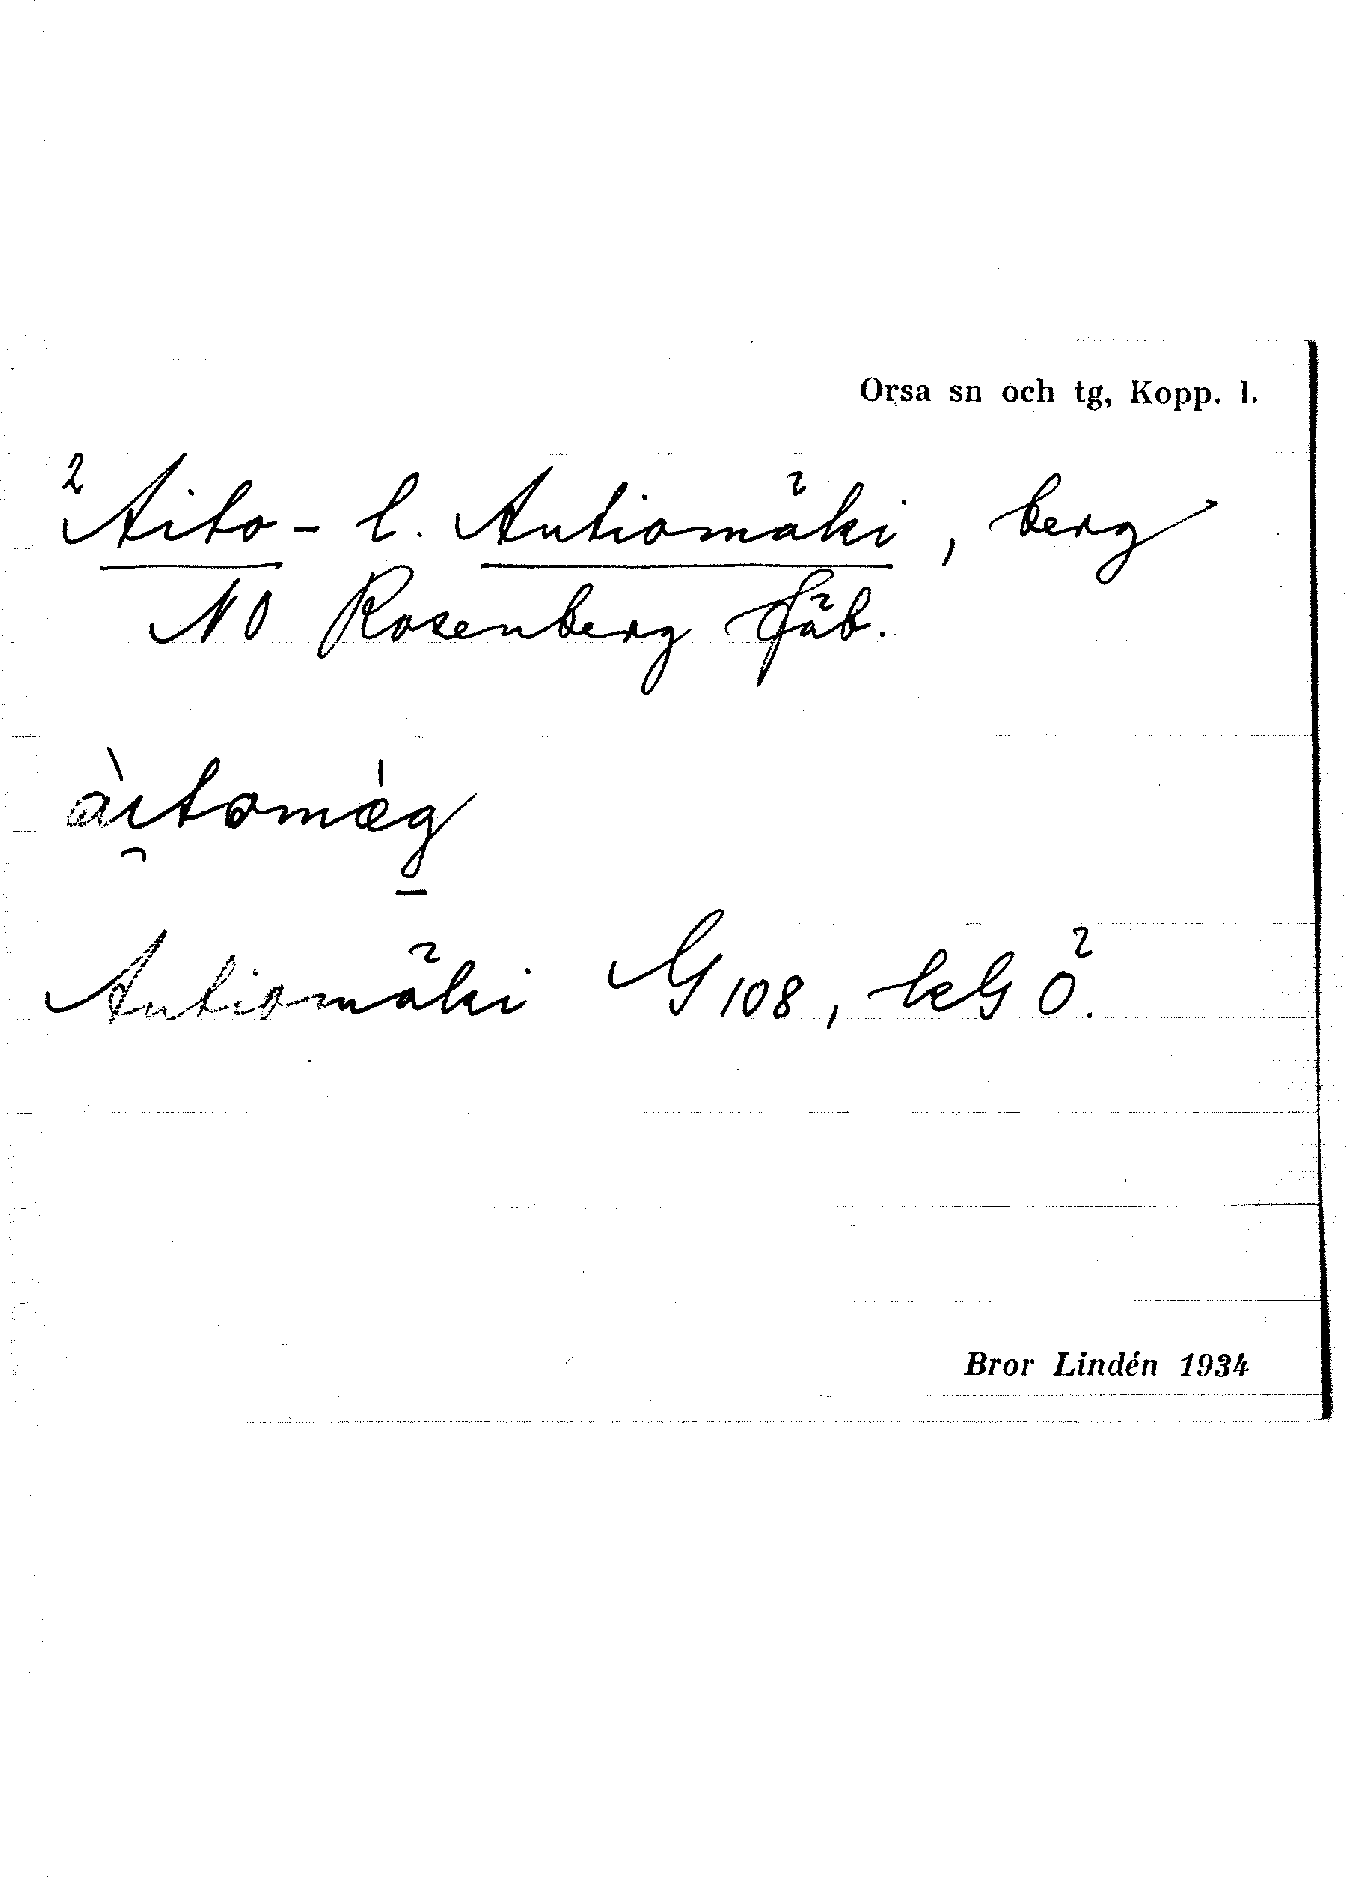 Orsa sn och tg, Kopp. l.
2 Aito- l. Autiomäki, berg
NO Rosenberg fäb.
àitomǽg
Autiomäki G 108, kG Ö.
Bror Lindén 1934